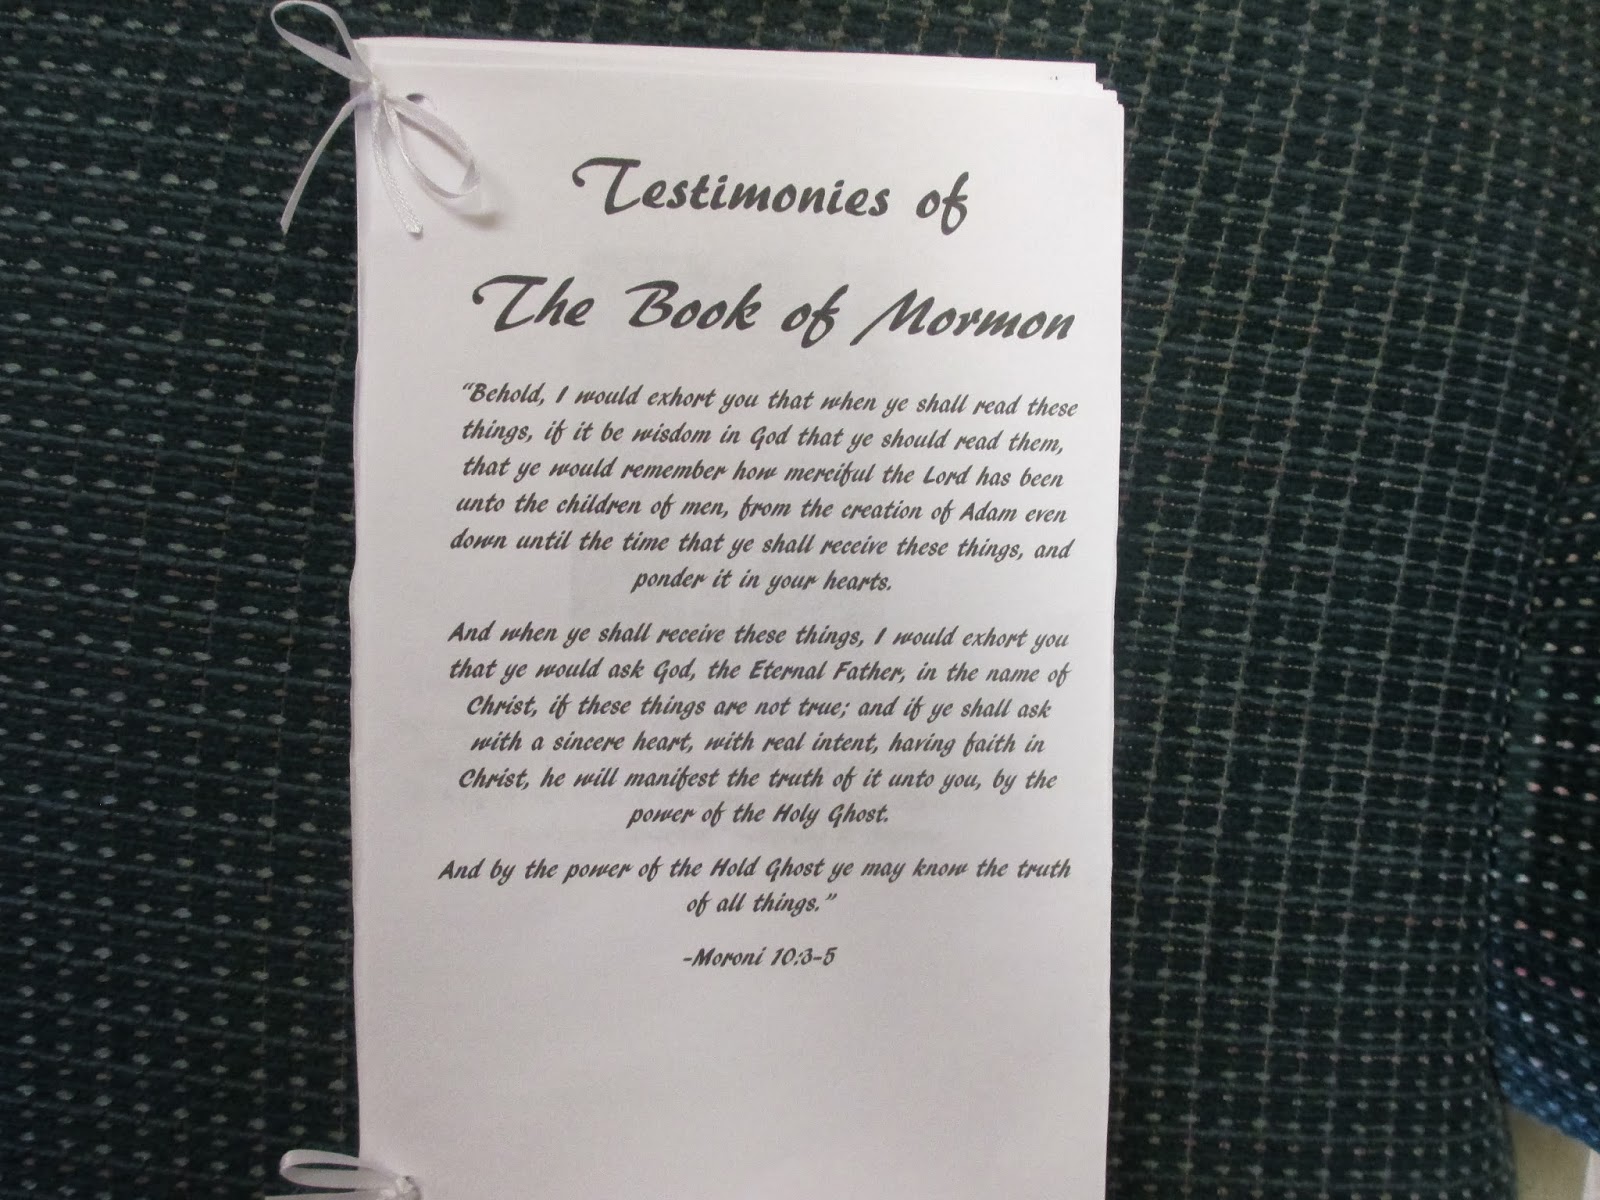 Testimonies of
The Book of Mormon
“Behold, I would exhort you that when ye shall read these
things, if it be wisdom in God that ye should read them,
that ye would remember how merciful the Lord has been
unto the children of men, from the creation of Adam even
down until the time that ye shall receive these things, and
ponder it in your hearts.
And when ye shall receive these things, I would exhort you
that ye would ask God, the Eternal Father, in the name of
Christ, if these things are not true; and if ye shall ask
with a sincere heart, with real intent, having faith in
Christ, he will manifest the truth of it unto you, by the
power of the Holy Ghost.
And by the power of the Hold Ghost ye may know the truth
of all things.”
-Moroni 10:3-5